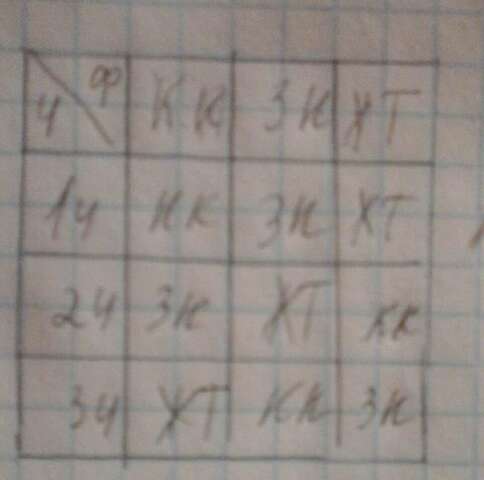 ч ф КК ЗК ЖТ
1ч КК ЗК ЖТ
2ч ЗК ЖТ КК
3ч ЖТ КК ЗК